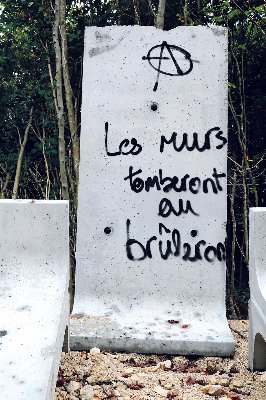 Les murs
tomberont
ou
brûleront